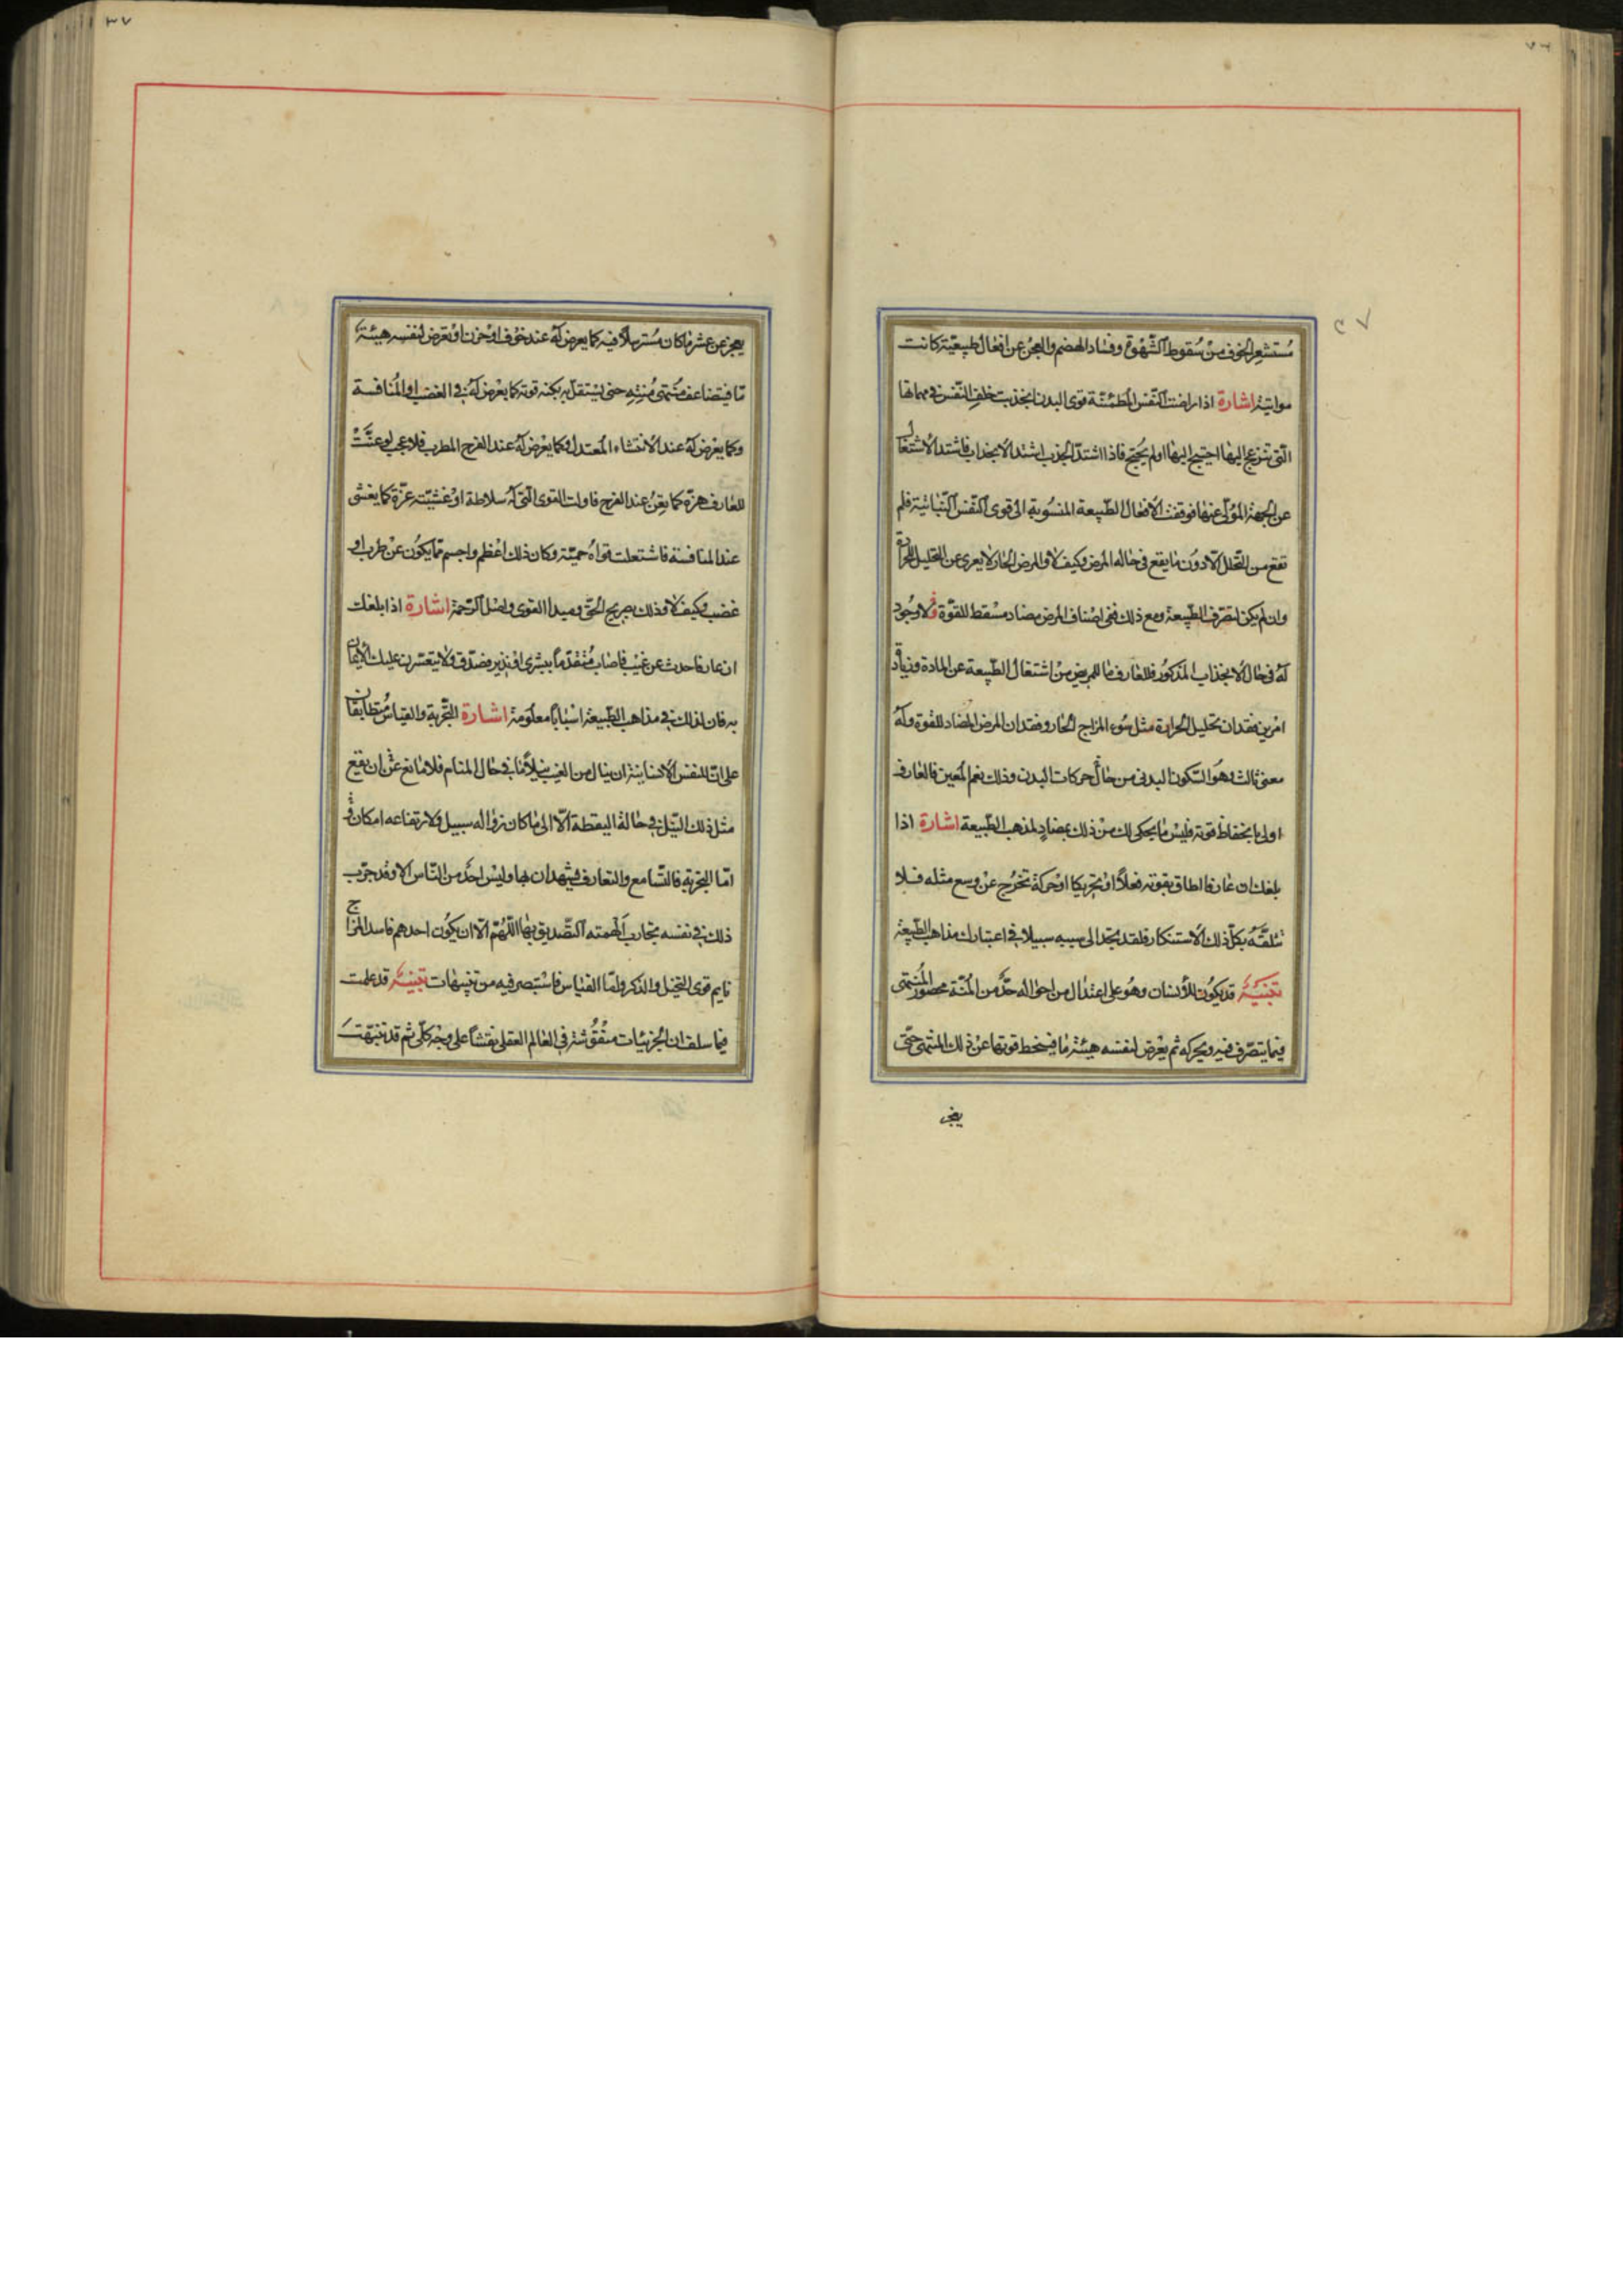 مستشعر الخوف من سقوط الشهوة وفساد الهضم والعجز عن افعال طبيعيّة كانت
مواتية اشارة اذا راضت النّفس المطمئنّة قوى البدن انجذبت خلف النّفس فى مهماتها
الّتى تنزعج اليها احتيج اليها اولم يحتج فاذا اشتدّ الجذب اشتد الانجذاب فاشتد الاشتغال
عن الجهة المولّى عنها فوقفت الافعال الطّبيعة المنسوبة الى قوى النّفس النّباتية فلم
تقع من التّحلل الّا دون ما يقع فى حاله المرض وكيف لا والمرض الحار لا يعرى عن التحليل للحرارة
وان لم يكن لتصرّف الطّبيعة ومع ذلك ففى اصناف المرض مضاد مسقط للقوّة ولا وجود
له فى حال الانجذاب المذكور فللعارف ما للمريض من اشتغال الطّبيعة عن المادة وزيادة
امرين فقدان تحليل الحرارة مثل سوء المزاج الحار وفقدان المرض المضاد للقوة وله
معنى ثالث وهو السّكون البدنى من حال حركات البدن وذلك نعم المعين فالعارف
اولى بانحفاظ قوته فليس ما يحكى لك من ذلك بمضادٍ لمذهب الطّبيعة اشارة اذا
بلغك ان عارفا اطاق بقوته فعلاً او تحريكا او حركة تخرج عن وسع مثله فلا
تتلقّه بكلّ ذلك الاستنكار فلقد تجد الى سببه سبيلا فى اعتبارك مذاهب الطّبيعة
تنبيه قد يكون للأنسان وهو على اعتدال من احواله حدّ من المنّة محصور المنتهى
فيما يتصرّف فيه ويحركه ثم يعرض لنفسه هيئة ما فينحط قوتها عن ذلك المنتهى حتّى
يعجز
يعجز عن عشر ما كان مسترسلاً فيه كما يعرض له عند خوف او حزن او تعرض لنفسه هيئة
مّا فيتضاعف منتهى منّته حتى يستقلّ به بكنه قوته كما يعرض له فى الغضب او المنافسة
وكما يعرض له عند الانتشاء المعتدل وكما يعرض له عند الفرح المطرب فلا عجب لو عنّت
للعارف هزّة كما يعنّ عند الفرح فاولت القوى الّتى له سلاطة او غشيته عزّة كما يغشى
عند المنافسة فاشتعلت قواه حميّة وكان ذلك اعظم واجسم ممّا يكون عن طرب او
غضب وكيف لا وذلك بصريح الحقّ ومبدأ القوى واصل الرّحمة اشارة اذا بلغك
ان عارفا حدث عن غيب فاصاب متقدّماً ببشرى او نذير فصدّق ولا يتعسّرن عليك الايمان
به فان لذلك فى مذاهب الطّبيعة اسبابا معلومة اشارة التّجربة والقياس متطابقان
على انّ للنفس الانسانية ان ينال من الغيب نيلاً ما فى حال المنام فلا مانع عن ان يقع
مثل ذلك النّيل فى حالة اليقظة الّا الى ما كان زواله سبيل ولارتفاعه امكان و
امّا التجربة فالتسامع والتعارف يشهدان بها وليس احد من النّاس الا وقد جرّب
ذلك فى نفسه تجارب الهمته التّصديق بها اللّهمّ الّا ان يكون احدهم فاسد المزاج
نايم قوى التخيل والذكر وامّا القياس فاستبصر فيه من تنبيهات تنبيه قد علمت
فيما سلف ان الجزئيات منقوشة فى العالم العقلى نقشاً على وجه كلّى ثم قد تنبّهت